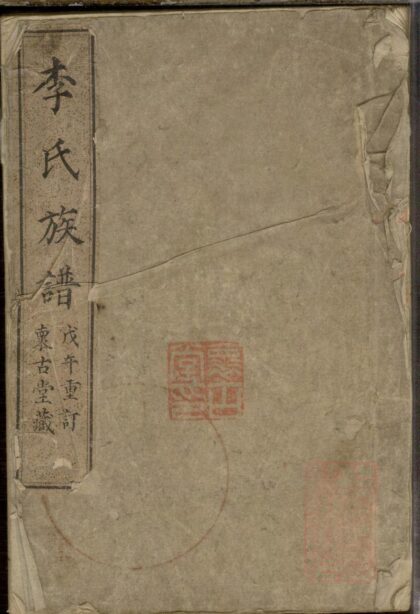 李氏族譜
戊午重訂
褱古堂藏